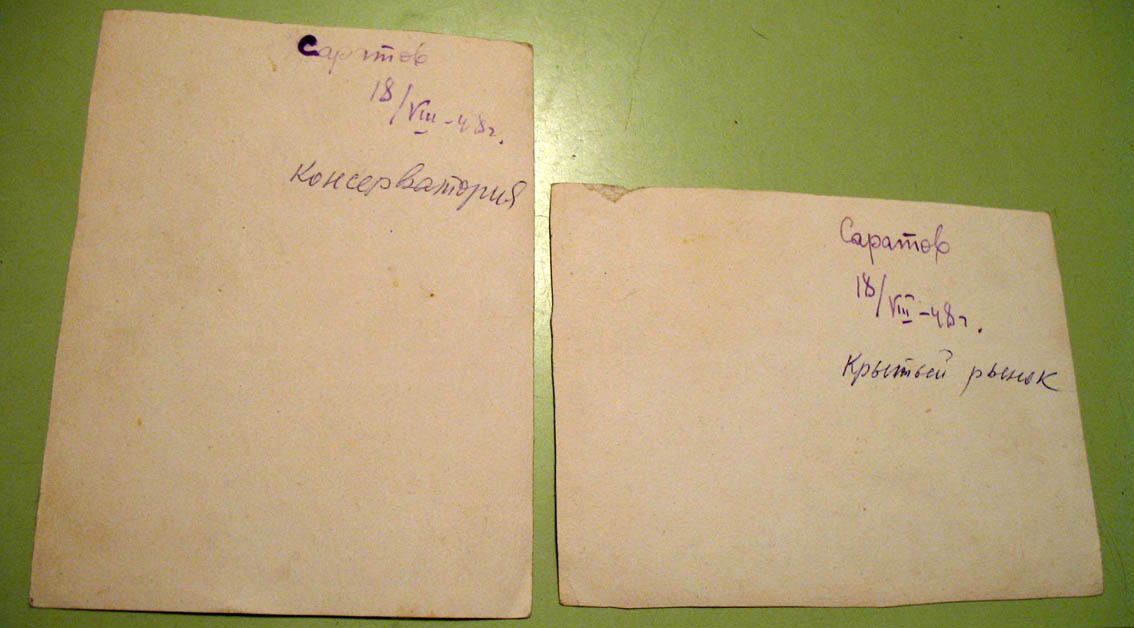 Саратов
18/VIII-48г.
Консерватория
Саратов
18/VIII-48г.
Крытый рынок